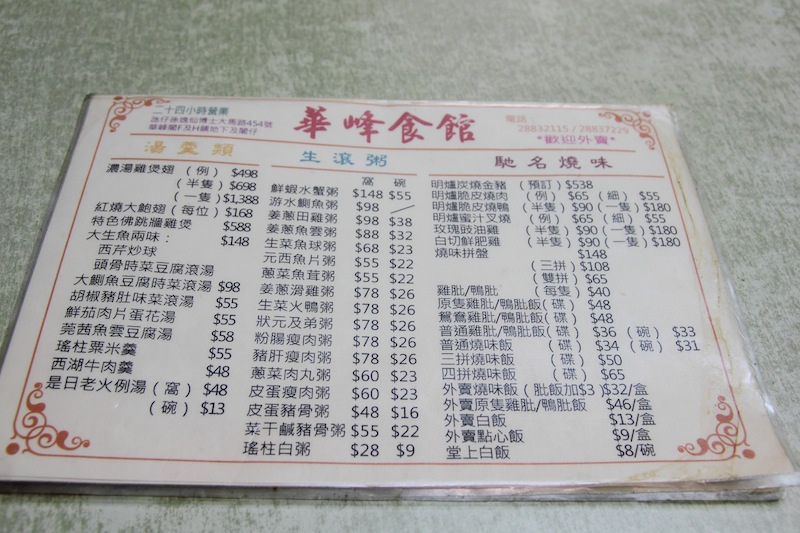 二十四小時營業
氹仔孫逸仙博士大馬路454號
華峰閣F及H鋪地下及閣仔
華峰食館
電話：
28832115 / 28837229
*歡迎外賣*
湯羹類
濃湯雞煲翅 （例） $498
（半隻） $698
（一隻） $1,388
紅燒大鮑翅（每位） $168
特色佛跳牆雞煲 $588
大生魚兩味： $148
西芹炒球
頭骨時菜豆腐滾湯
大鰂魚豆腐時菜滾湯 $98
胡椒豬肚味菜滾湯 $55
鮮茄肉片蛋花湯 $55
莞茜魚雲豆腐湯 $58
瑤柱粟米羹 $55
西湖牛肉羹 $48
是日老火例湯（窩） $48
（碗） $13
生滾粥
窩 碗
鮮蝦水蟹粥 $148 $55
游水鰂魚粥 $98
姜蔥田雞粥 $98 $38
姜蔥魚雲粥 $88 $32
生菜魚球粥 $68 $23
元西魚片粥 $55 $22
蔥菜魚茸粥 $55 $22
姜蔥滑雞粥 $78 $26
生菜火鴨粥 $78 $26
狀元及弟粥 $78 $26
粉腸瘦肉粥 $78 $26
豬肝瘦肉粥 $78 $26
蔥菜肉丸粥 $60 $23
皮蛋瘦肉粥 $60 $23
皮蛋豬骨粥 $48 $16
菜干鹹豬骨粥 $55 $22
瑤柱白粥 $28 $9
馳名燒味
明爐炭燒金豬 （預訂） $538
明爐脆皮燒肉 （例） $65 （細） $55
明爐脆皮燒鴨 （半隻） $90 （一隻） $180
明爐蜜汁叉燒 （例） $65 （細） $55
玫瑰豉油雞 （半隻） $90 （一隻） $180
白切鮮肥雞 （半隻） $90 （一隻） $180
燒味拼盤 $148
（三拼） $108
（雙拼） $65
雞肶/鴨肶 （每隻） $40
原隻雞肶/鴨肶飯 （碟） $48
鴛鴦雞肶/鴨肶飯 （碟） $48
普通雞肶/鴨肶飯 （碟） $36 （碗） $33
普通燒味飯 （碟） $34 （碗） $31
三拼燒味飯 （碟） $50
四拼燒味飯 （碟） $65
外賣燒味飯 （肶飯加$3） $32/盒
外賣原隻雞肶/鴨肶飯 $46/盒
外賣白飯 $13/盒
外賣點心飯 $9/盒
堂上白飯 $8/碗